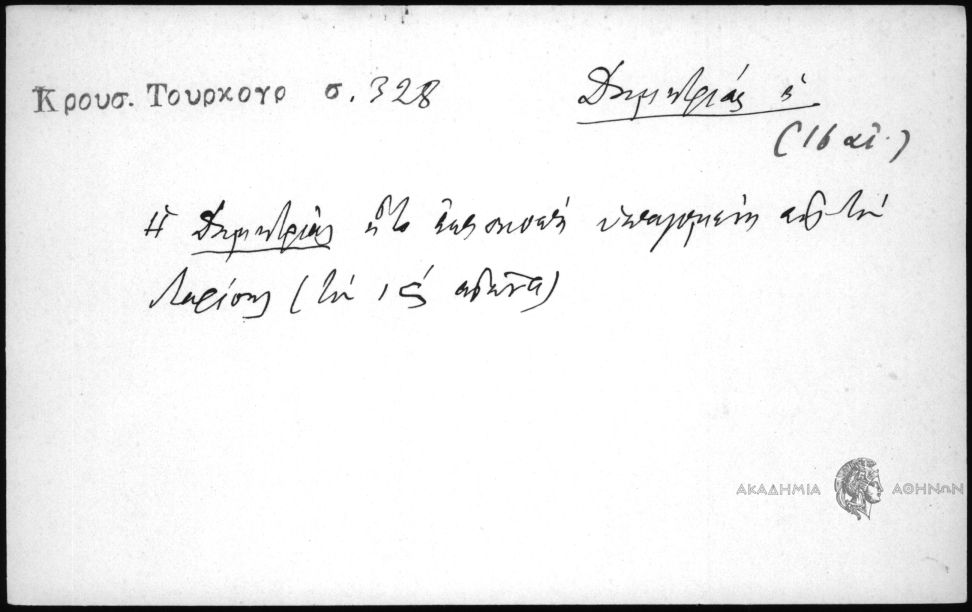 Κρουσ. Τουρκογρ σ. 328
Δημητριάς ἡ
(16 αἰ.)
Ἡ Δημητριὰς ἦτο ἐπισκοπὴ ὑπαγομένη εἰς τὴν
Λαρίσης (τὸν ις΄ αἰῶνα)
ΑΚΑΔΗΜΙΑ ΑΘΗΝΩΝ